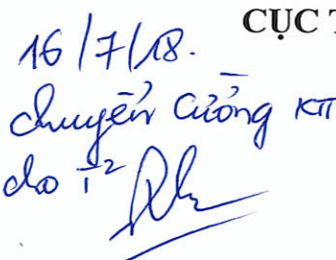 CỤC T
16/7/18.
chuyển Cường KTT
cho T²